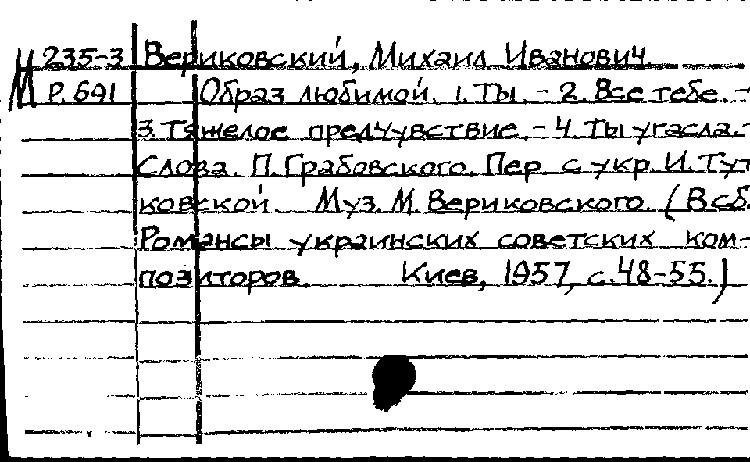 М 235-3 Вериковский, Михаил Иванович
М Р. 691 Образ любимой. 1. Ты. - 2. Все тебе. -
3. Тяжелое предчувствие. - 4. Ты угасла. -
Слова. П. Грабовского. Пер. с укр. И. Тут-
ковской. Муз. М. Вериковского. (В сб.
Романсы украинских советских ком-
позиторов. Киев, 1957, с. 48-55.)